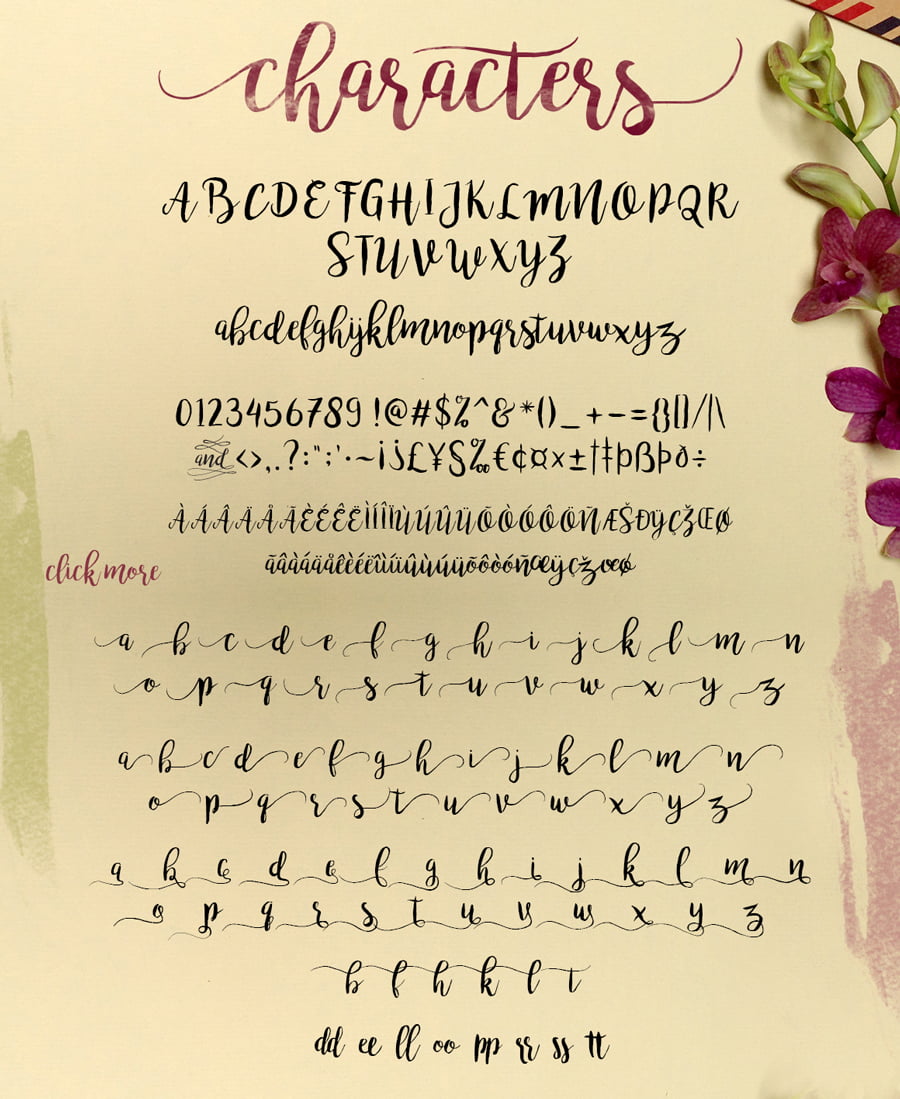 characters
ABCDEFGHIJKLMNOPQR
STUVWXYZ
abcdefghijklmnopqrstuvwxyz
0123456789 !@#$%^&*()_+-={}[]/|\
and <>,.?:";'·~¡¿£¥§‰€¢¤×±†‡þßÞð÷
ÀÁÂÄÅÃÈÉÊËÌÍÎÏÙÚÛÜÕÒÓÔÖÑÆŠÐŸÇŽŒØ
click more
a b c d e f g h i j k l m n
o p q r s t u v w x y z
a b c d e f g h i j k l m n
o p q r s t u v w x y z
a b c d e f g h i j k l m n
o p q r s t u v w x y z
b f h k l t
dd ee ll oo pp rr ss tt